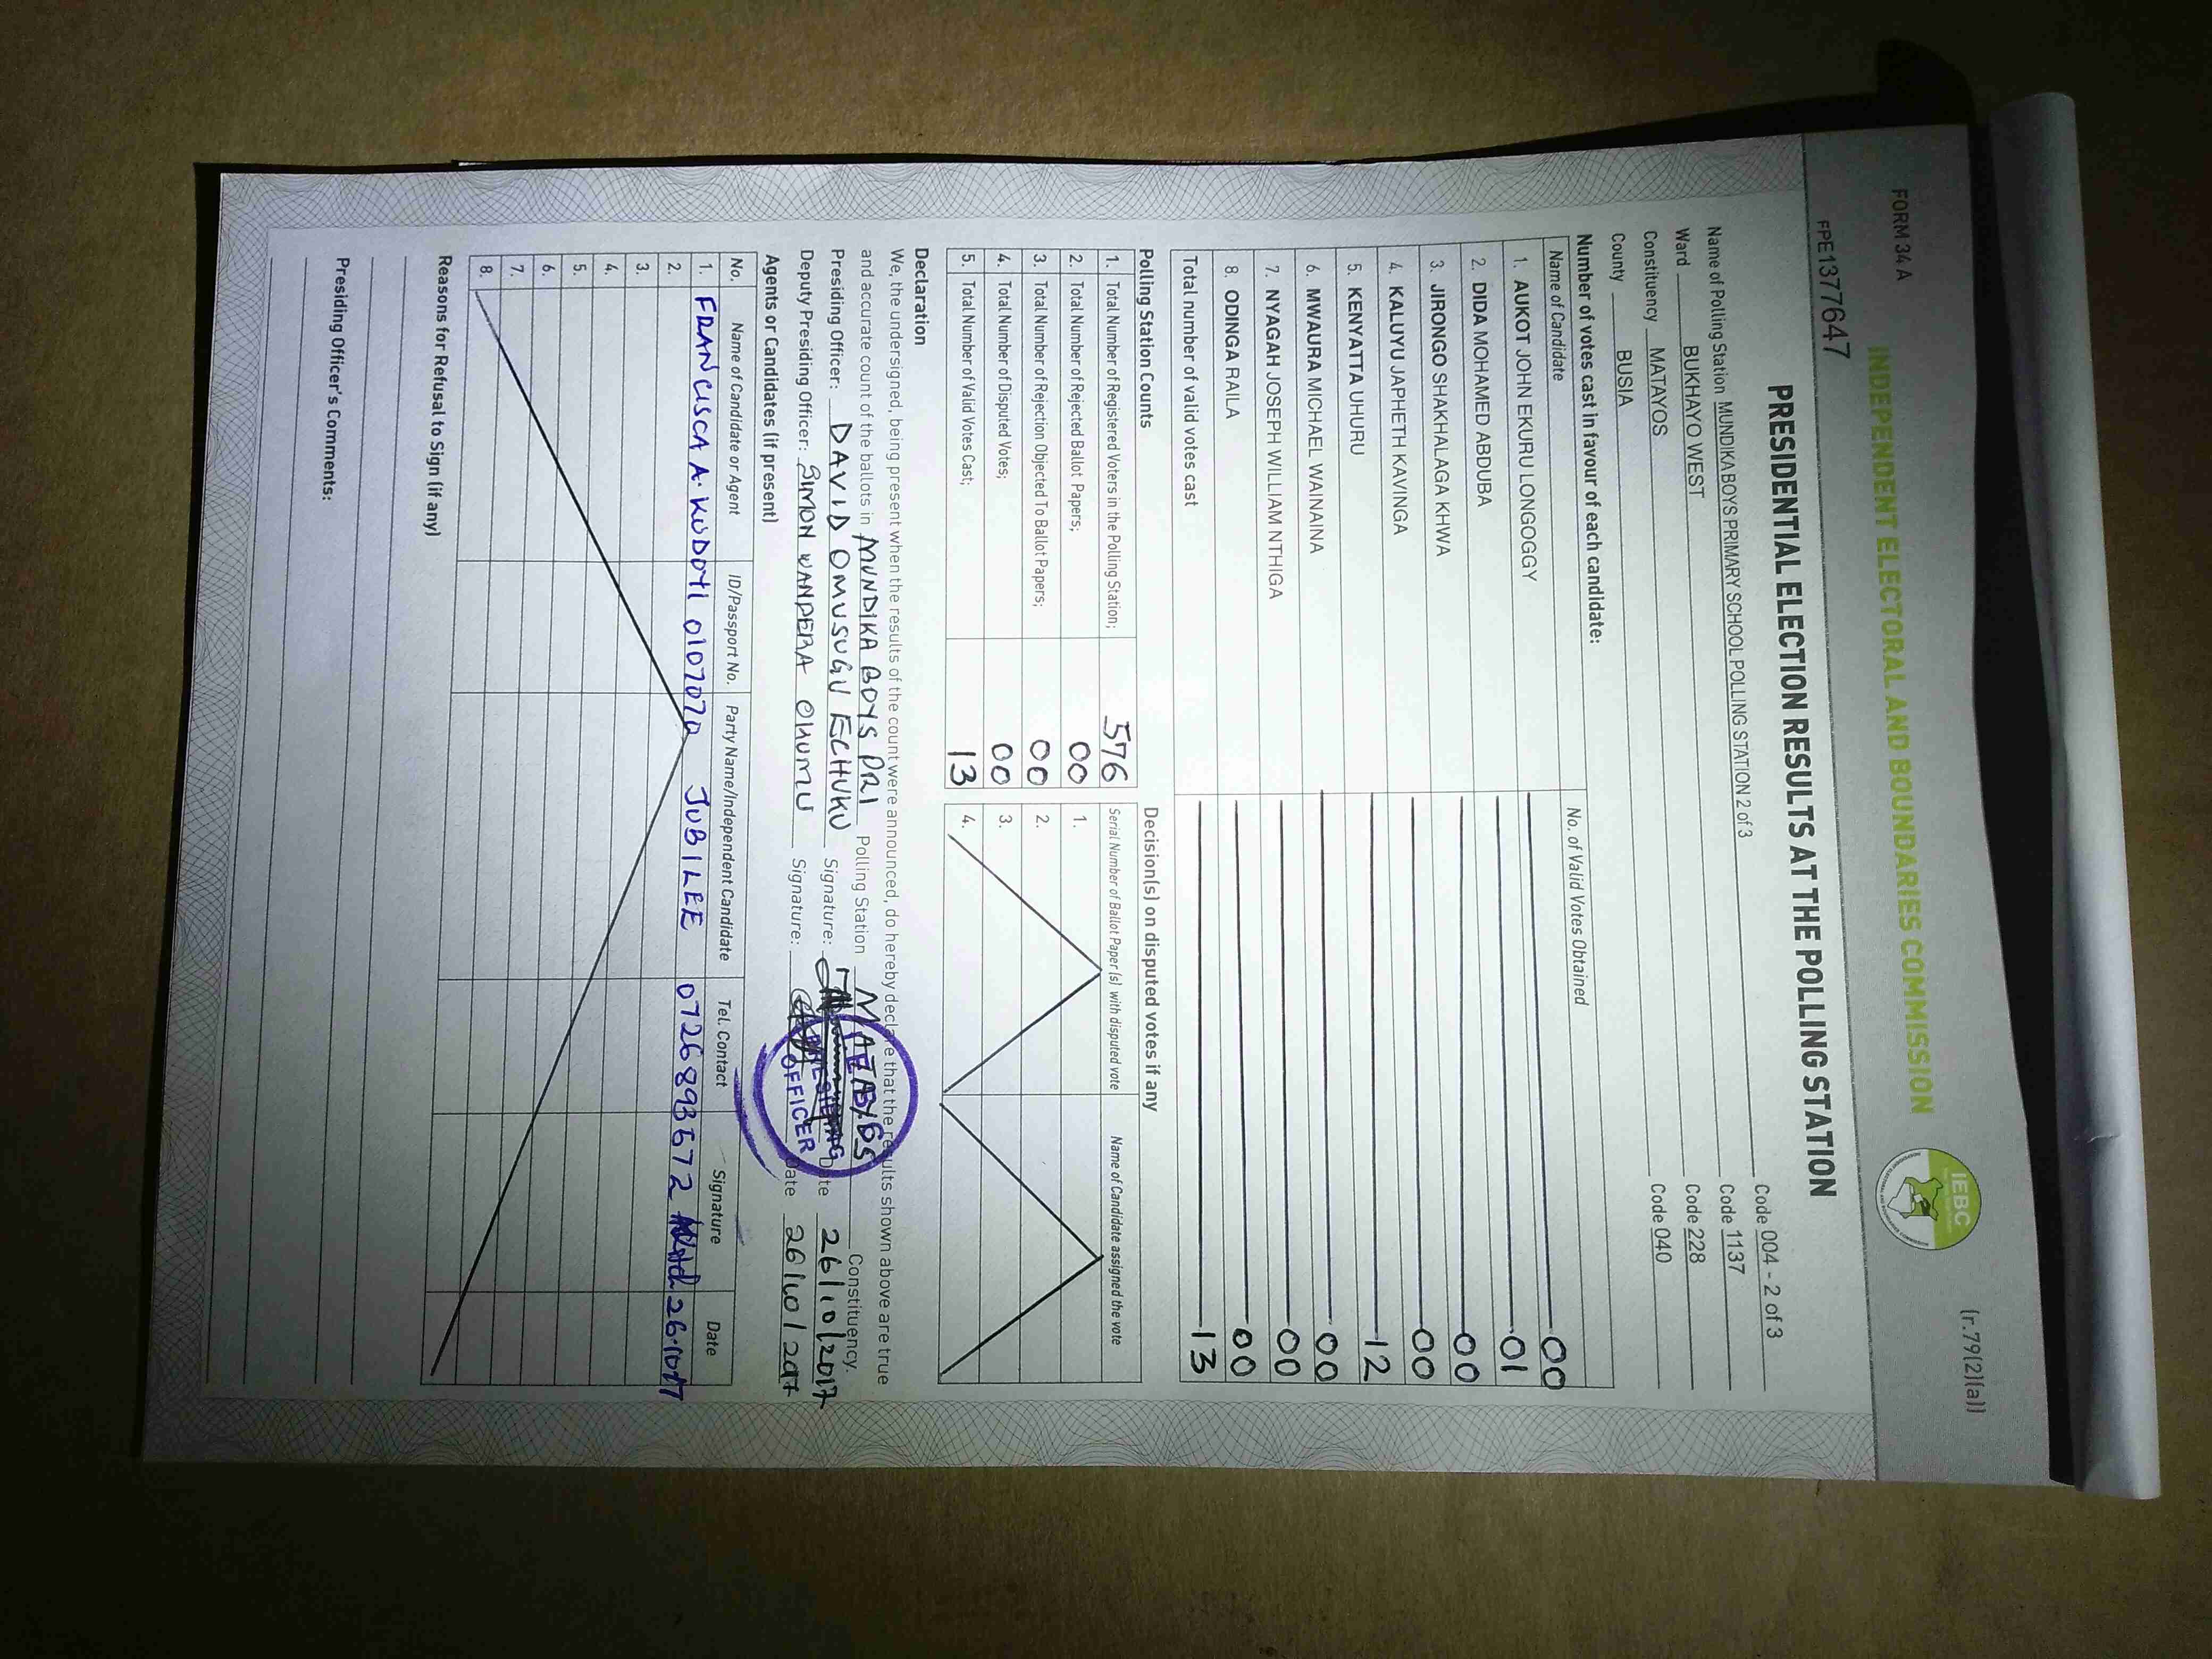 FORM 34 A
(r.79(2)(a))
INDEPENDENT ELECTORAL AND BOUNDARIES COMMISSION
IEBC
FPE1377647
PRESIDENTIAL ELECTION RESULTS AT THE POLLING STATION
Name of Polling Station MUNDIKA BOYS PRIMARY SCHOOL POLLING STATION 2 of 3 Code 004 - 2 of 3
Ward BUKHAYO WEST Code 1137
Constituency MATAYOS Code 228
County BUSIA Code 040
Number of votes cast in favour of each candidate:
Name of Candidate No. of Valid Votes Obtained
1. AUKOT JOHN EKURU LONGOGGY 00
2. DIDA MOHAMED ABDUBA 01
3. JIRONGO SHAKHALAGA KHWA 00
4. KALUYU JAPHETH KAVINGA 00
5. KENYATTA UHURU 12
6. MWAURA MICHAEL WAINAINA 00
7. NYAGAH JOSEPH WILLIAM NTHIGA 00
8. ODINGA RAILA 00
Total number of valid votes cast 13
Polling Station Counts Decision(s) on disputed votes if any
1. Total Number of Registered Voters in the Polling Station; 576 Serial Number of Ballot Paper (s) with disputed vote Name of Candidate assigned the vote
2. Total Number of Rejected Ballot Papers; 00 1.
3. Total Number of Rejection Objected To Ballot Papers; 00 2.
4. Total Number of Disputed Votes; 00 3.
5. Total Number of Valid Votes Cast; 13 4.
Declaration
We, the undersigned, being present when the results of the count were announced, do hereby declare that the results shown above are true
and accurate count of the ballots in MUNDIKA BOYS PRI Polling Station MATAYOS Constituency.
Presiding Officer: DAVID OMUSUGU ECHUKU Signature: Date 26/10/2017
Deputy Presiding Officer: SIMON WANDERA OHUMU Signature: Date 26/10/2017
PRESIDING OFFICER
Agents or Candidates (if present)
No. Name of Candidate or Agent ID/Passport No. Party Name/Independent Candidate Tel. Contact Signature Date
1. FRANCISCA A. KUDDYI 0107070 JUBILEE 0726893672 26.10.17
2.
3.
4.
5.
6.
7.
8.
Reasons for Refusal to Sign (if any)
Presiding Officer's Comments: